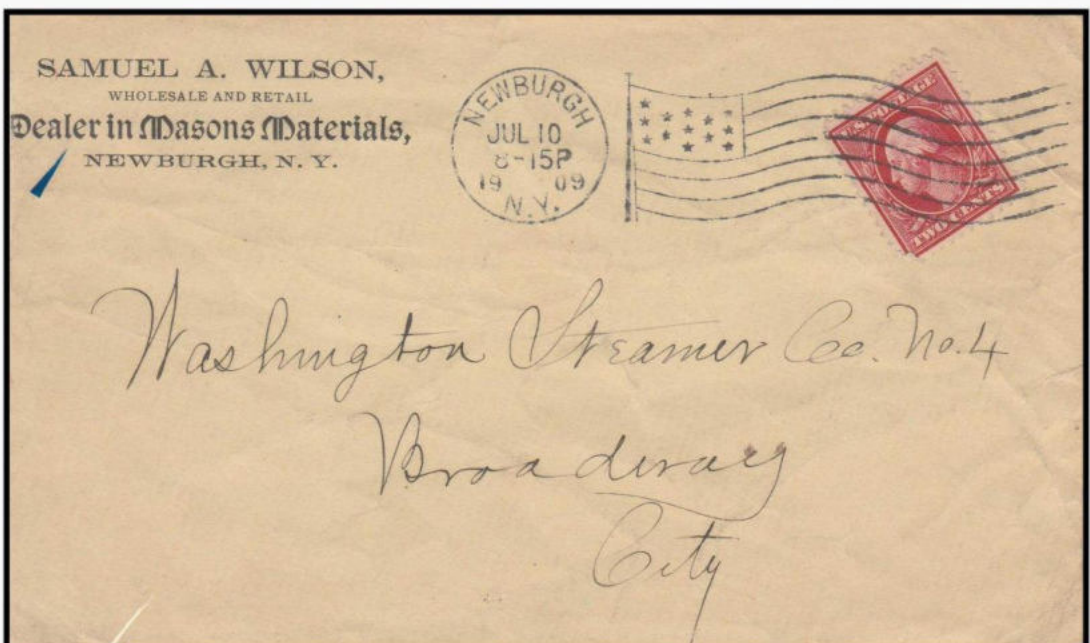 SAMUEL A. WILSON,
WHOLESALE AND RETAIL
Dealer in Masons Materials,
NEWBURGH, N. Y.
NEWBURGH
JUL 10
8-15P
19 09
N.Y.
U.S. POSTAGE
TWO CENTS
Washington Steamer Co. No. 4
Broadway
City